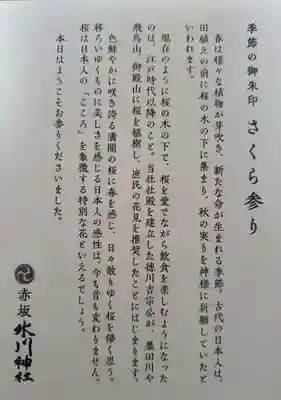 季節の御朱印 さくら参り
春は様々な植物が芽吹き、新たな命が生まれる季節。古代の日本人は、
田植えの前に桜の木の下に集まり、秋の実りを神様に祈願していたと
いわれます。
現在のように桜の木の下で、桜を愛でながら飲食を楽しむようになった
のは、江戸時代以降のこと。当社社殿を建立した徳川吉宗公が、墨田川や
飛鳥山、御殿山に桜を植樹し、庶民の花見を推奨したことにはじまります。
色鮮やかに咲き誇る満開の桜に春を感じ、日々散りゆく桜を儚く思う。
移ろいゆくものに美しさを感じる日本人の感性は、今も昔も変わりません。
桜は日本人の「こころ」を象徴する特別な花といえるでしょう。
本日はようこそお参りくださいました。
赤坂 氷川神社